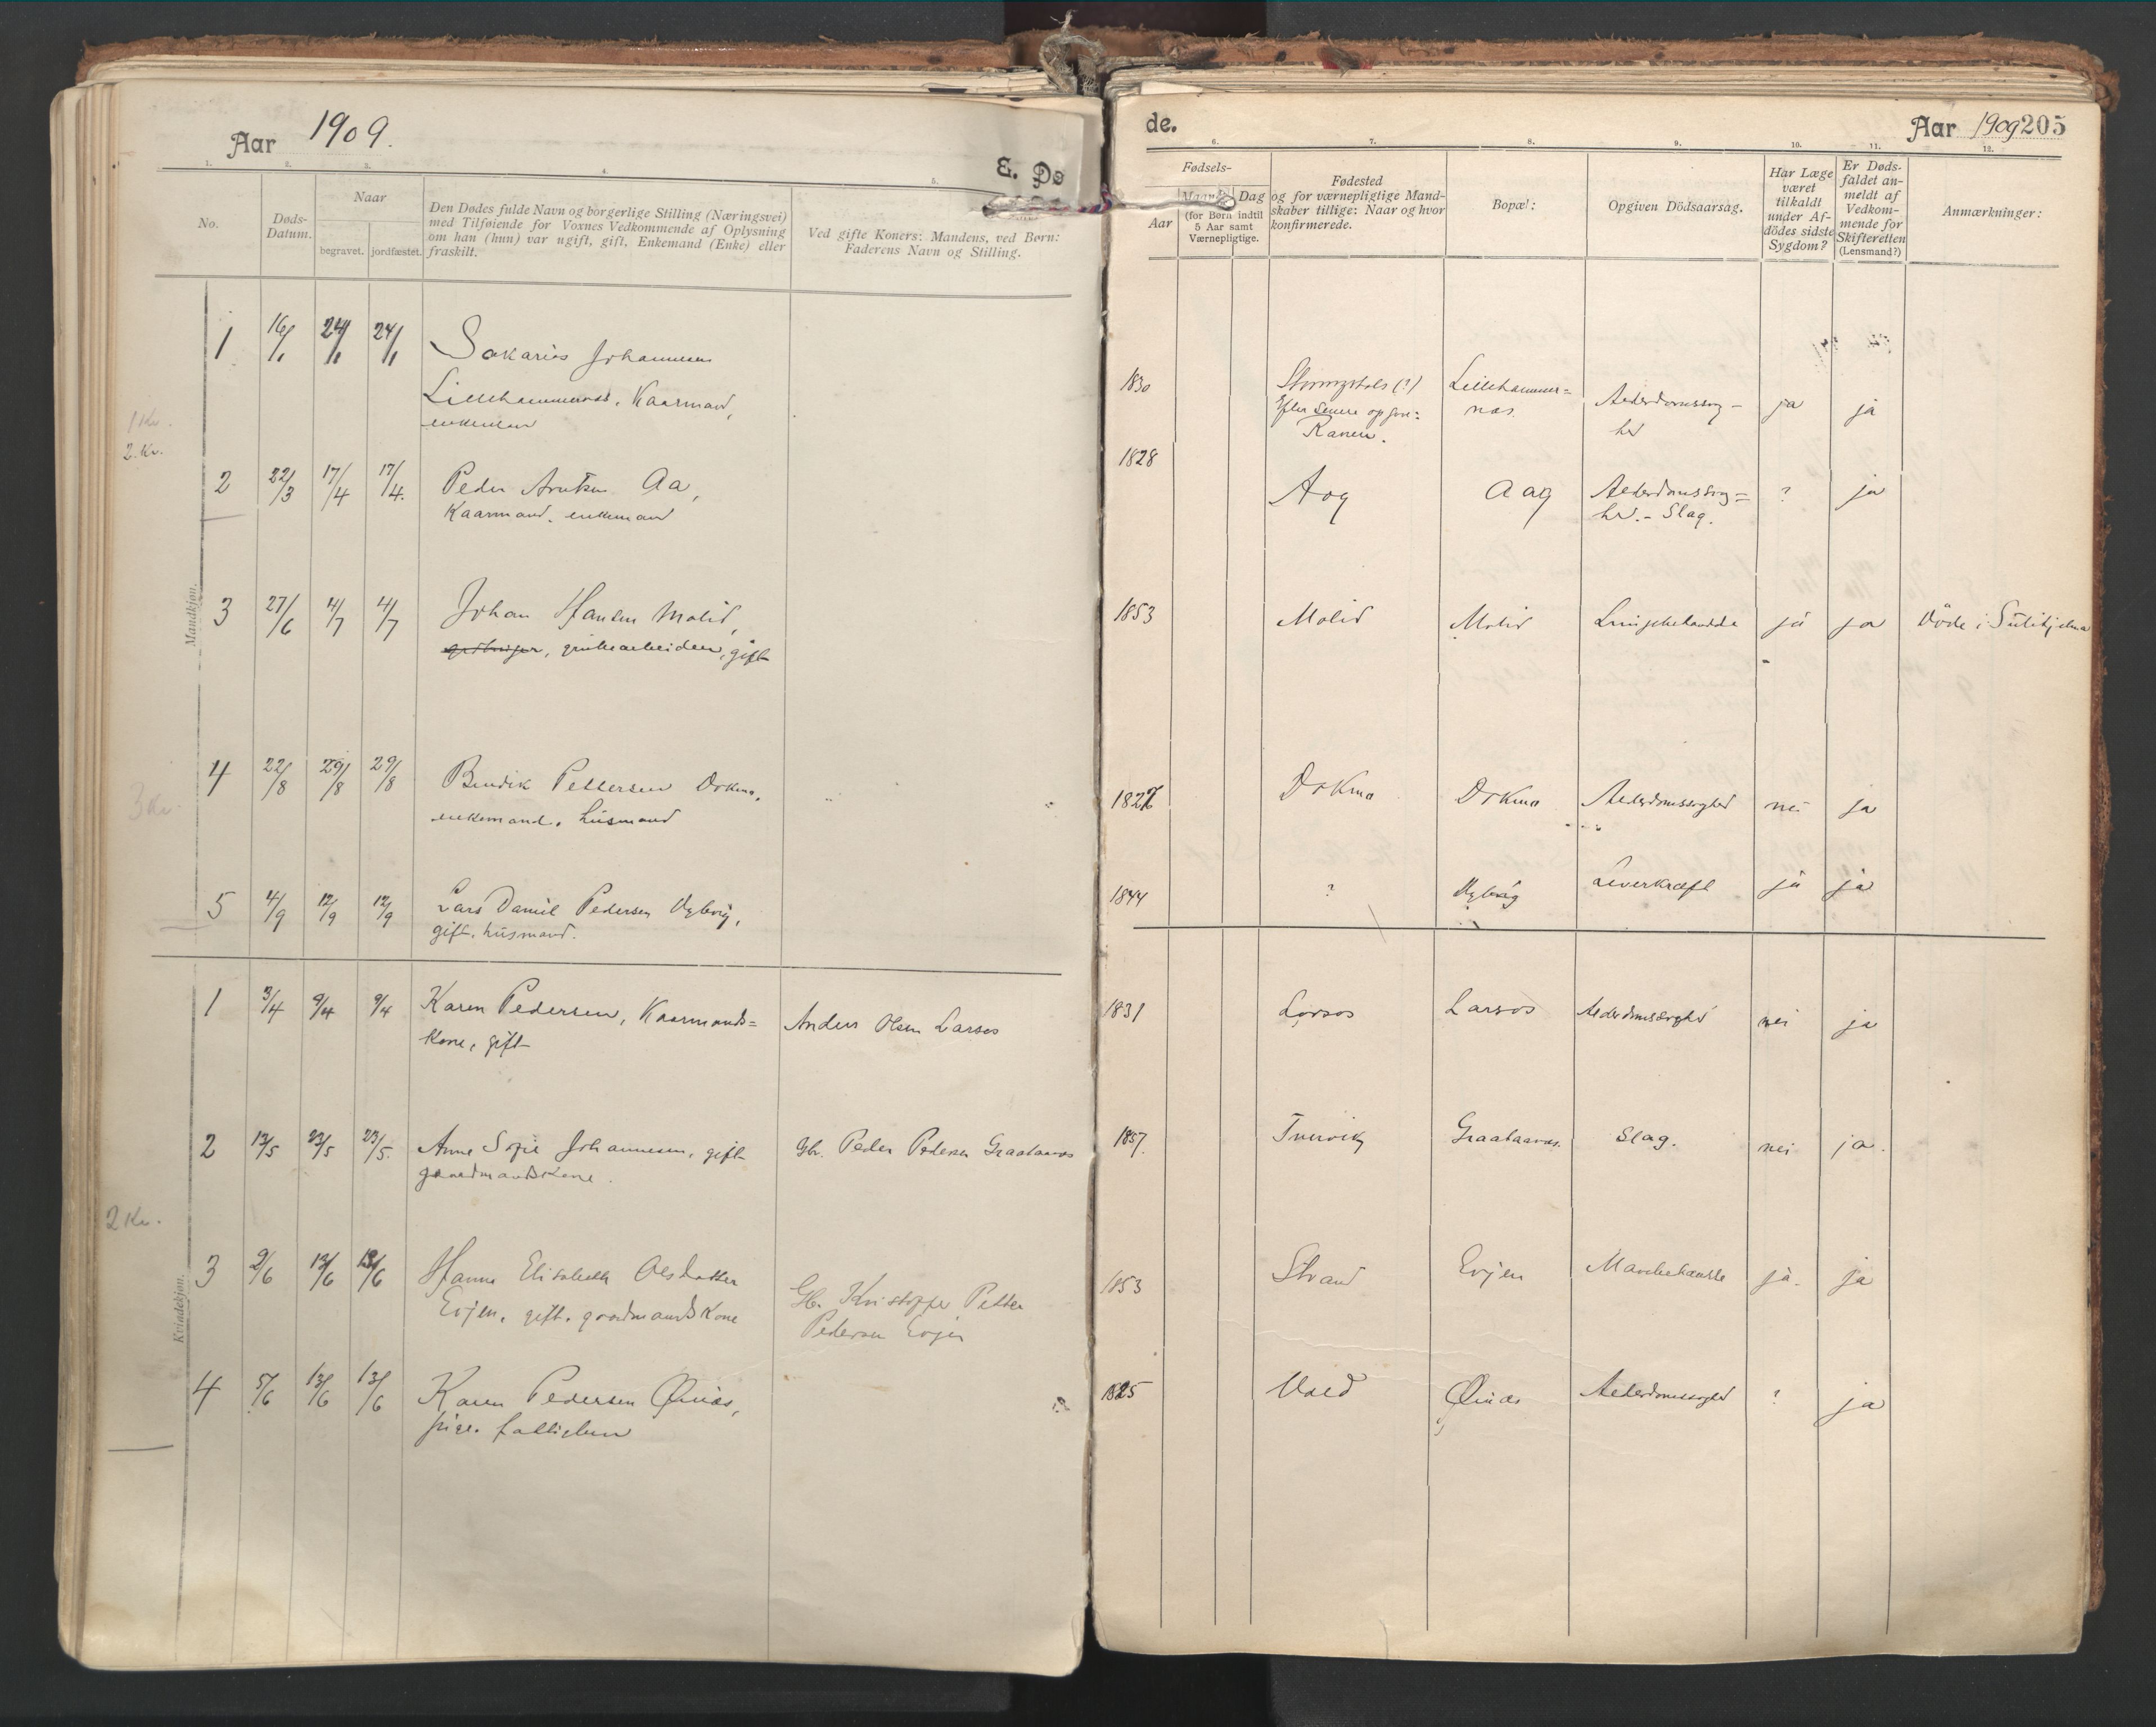 Aar 1909.
E. Dø
1. 2. 3. 4. 5.
No.
Døds-
Datum.
Naar
begravet. jordfæstet.
Den Dødes fulde Navn og borgerlige Stilling (Næringsvei)
med Tilføiende for Voxnes Vedkommende af Oplysning
om han (hun) var ugift, gift, Enkemand (Enke) eller
fraskilt.
Ved gifte Koners: Mandens, ved Børn:
Faderens Navn og Stilling.
Mandkjøn.
1 16/1 24/1 24/1 Sakarias Johannesen
Lillehammernæs, Kaarmand,
enkeman
1 Kr.
2. Kr.
2 22/3 17/4 17/4. Peder Arntsen Aa,
Kaarmand. enkemand
3 27/6 4/7 4/7 Johan Hansen Molid,
grubearbeider, gift
4 22/8 29/8 29/8 Bendik Pettersen Dokmo,
enkemand. husmand
3 Kr.
5 4/9 12/9 12/9 Lars Daniel Pedersen
gift. husmand.
Kvindekjøn.
1 3/4 9/4 9/4 Karen Pedersen, Kaarmands=
kone, gift
Anders Olsen Larsos
2 13/5 23/5 23/5. Anne Sofie Johannesen, gift
gaardmandskone.
Gbr. Peder Pedersen Graataanæs
2 Kr.
3 9/6 13/6 13/6 Hanna Elisabeth Olsdatter
Evjen, gift. gaardmandskone
Gbr. Kristoffer Petter
Pedersen Evjen
4 5/6 13/6 13/6 Karen Pedersen Øinæs,
pige. fattiglem
de.
Aar 1909 205
6. 7. 8. 9. 10. 11. 12.
Fødsels-
Aar
Maaned Dag
(for Børn indtil
5 Aar samt
Værnepligtige.
Fødested
og for værnepligtige Mand-
skaber tillige: Naar og hvor
konfirmerede.
Bopæl:
Opgiven Dödsaarsag.
Har Læge
været
tilkaldt
under Af-
dödes sidste
Sygdom?
Er Døds-
faldet an-
meldt af
Vedkom-
mende for
Skifteretten
(Lensmand?)
Anmærkninger:
1830 (?)
Efter senere opgave:
Ranen.
Lillehammer=
næs.
Alderdomssvag-
hed
ja ja
1828 Aag Aag Alderdomssvag=
hed. - Slag.
? ja
1853 Molid Molid Lungebetændelse ja ja Døde i Sulitjelma
1827 Dokmo Dokmo Alderdomssvaghed nei ja
1844 ? Leverkræft ja ja
1831 Larsos Larsos Alderdomssvaghed nei ja
1857. Tvervik Graataanæs. Slag. nei ja.
1853 Strand Evjen Mavebetændelse ja. ja
1825 Øinæs Alderdomssvaghed ? ja